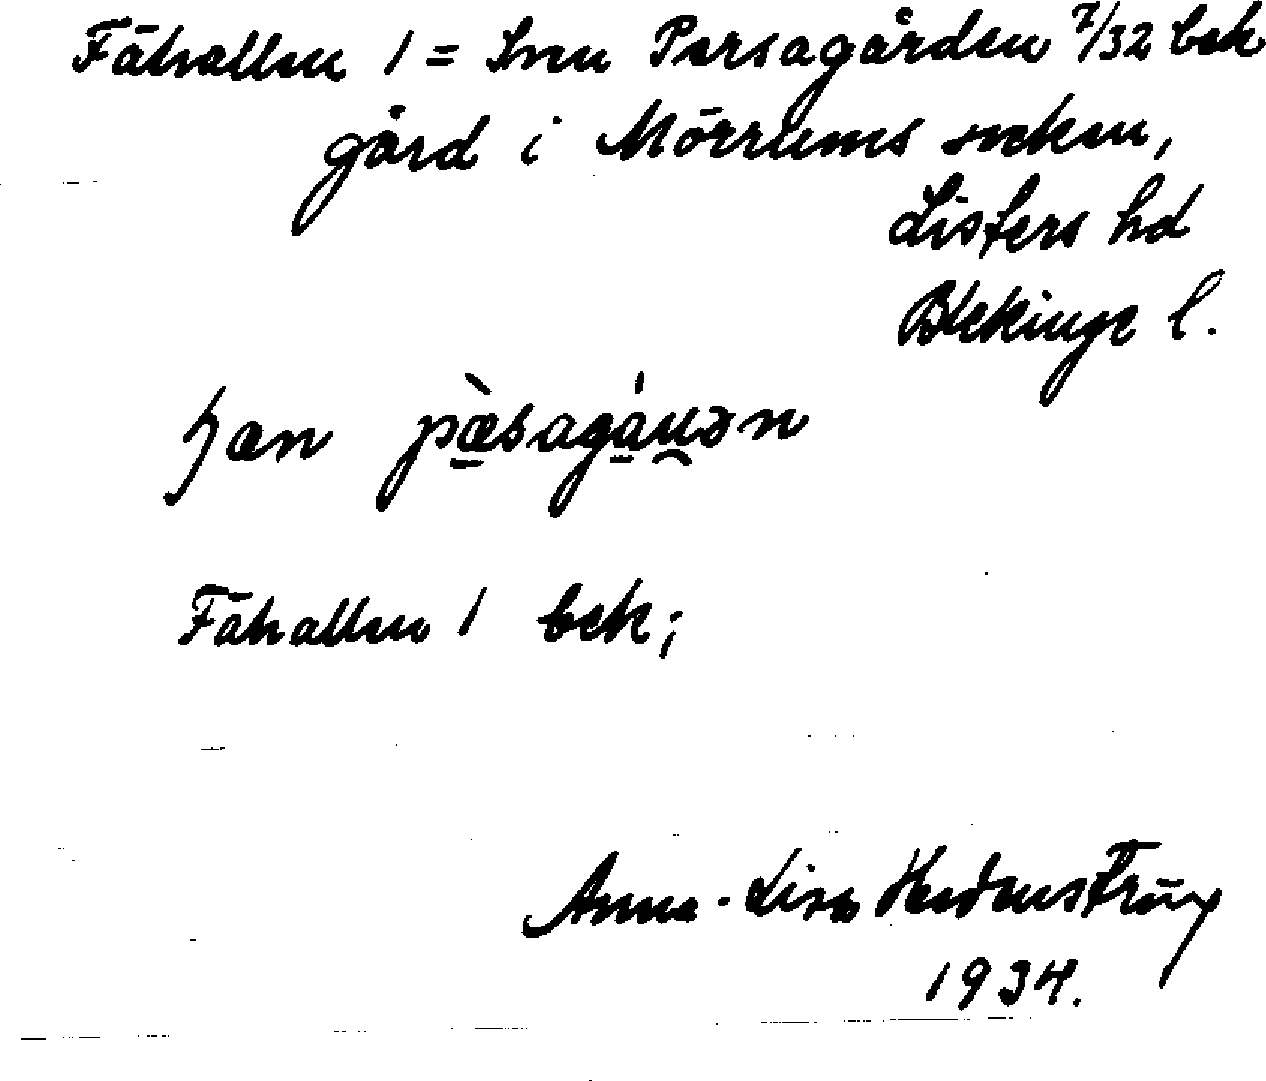 Fähallen 1 = Sven Persagården 7/32 bek
gård i Mörrums socken,
Listers hd
Blekinge l.
pæ̀sagáu̯ən
Fähallen 1 bek;
Anna-Lisa Hedenstrüy
1934.